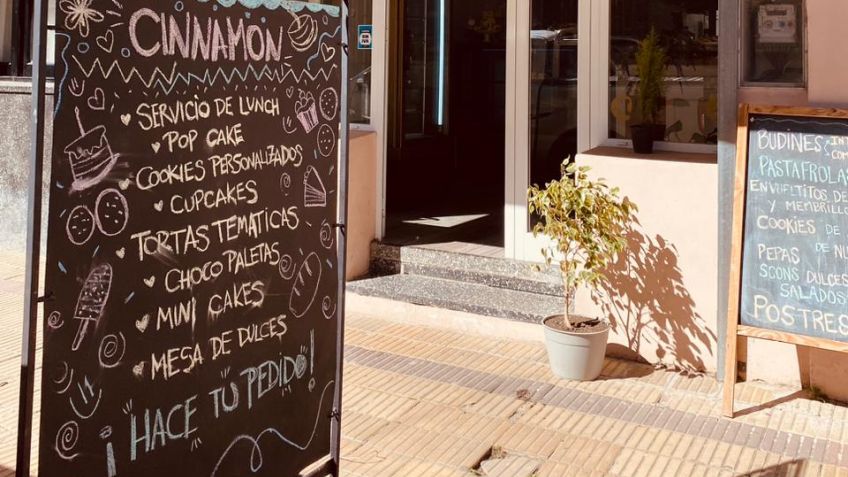 CINNAMON
SERVICIO DE LUNCH
POP CAKE
COOKIES PERSONALIZADOS
CUPCAKES
TORTAS TEMATICAS
CHOCO PALETAS
MINI CAKES
MESA DE DULCES
¡HACE TU PEDIDO!
BUDINES: INT
COM
PASTAFROLAS
ENVUELTITOS DE
Y MEMBRILLO
COOKIES DE
PEPAS DE NU
SCONS DULCES
SALADOS
POSTRES